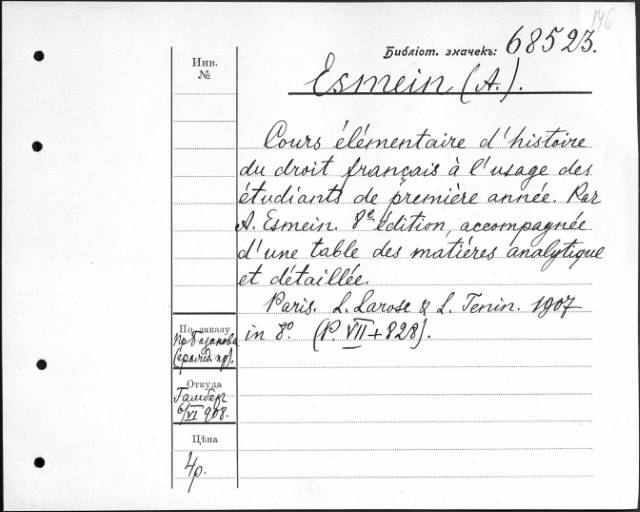 146
Библіот. значекъ: 68523.
Инв.
№
Esmein (A.).
Cours élémentaire d'histoire
du droit français à l'usage des
étudiants de première année. Par
A. Esmein. 8e édition, accompagnée
d'une table des matières analytique
et détaillée.
Paris. L. Larose & L. Tenin. 1907
in 8º. (P. VII + 828).
По заказу
Откуда
Гамберг
6/VI 908.
Цѣна
4р.